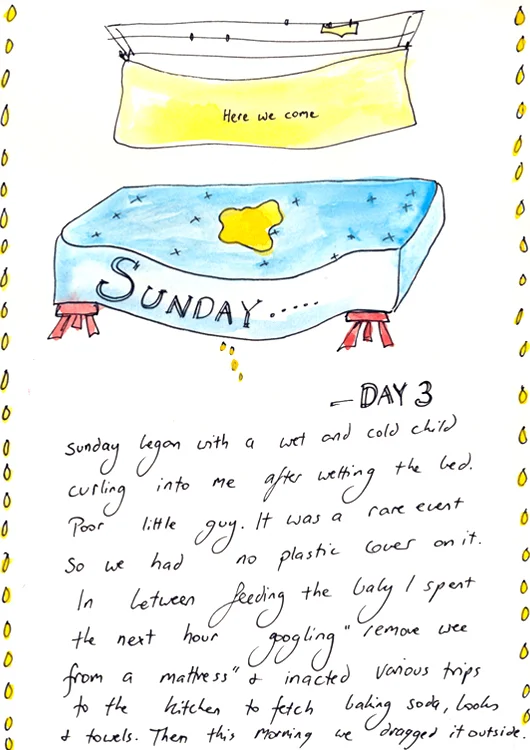 Here we come
SUNDAY.....
– DAY 3
Sunday began with a wet and cold child
curling into me after wetting the bed.
Poor little guy. It was a rare event
So we had no plastic cover on it.
In between feeding the baby I spent
the next hour googling "remove wee
from a mattress" & inacted various trips
to the kitchen to fetch baking soda, books
& towels. Then this morning we dragged it outside